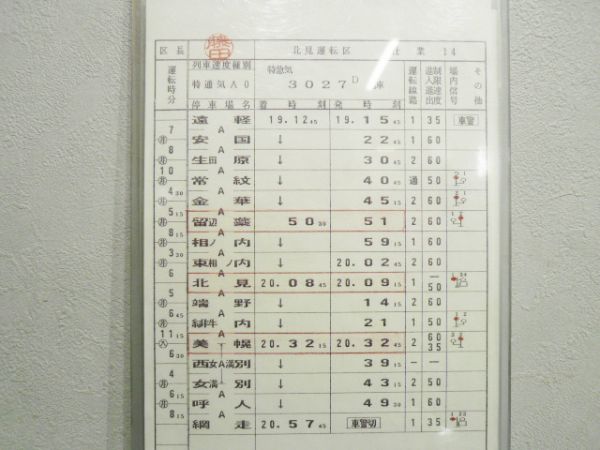 区長 藤田 北見運転区 仕業 14
運転時分 列車速度種別 特急気 3027D 列車 運転線路 制限速度 進入進出 場内信号 その他
特通気A0
停車場名 着時刻 発時刻
遠軽 19.12 45 19.15 45 1 35 車警
7 A
安国 ↓ 22 45 1 60
8 A
生田原 ↓ 30 45 2 60
10 A
常紋 ↓ 40 45 通 50 2 1
4 30 A
金華 ↓ 45 15 2 60 2 1
5 15 A
留辺蘂 50 30 51 2 60 1 2
8 15 A
相ノ内 ↓ 59 15 1 60
3 30 A
東相ノ内 ↓ 20.02 45 2 60
6 A
北見 20.08 45 20.09 15 1 － 50 1 34
5 A
端野 ↓ 14 15 2 60
6 45 A
緋牛内 ↓ 21 1 50 1 2
11 15 A
美幌 20.32 15 20.32 45 2 60 35 3 2
6 30 A
西女満別 ↓ 39 15 － －
4
女満別 ↓ 43 15 2 50
6 15 A
呼人 ↓ 49 30 1 60
8 15 A
網走 20.57 45 車警切 1 35 1 23